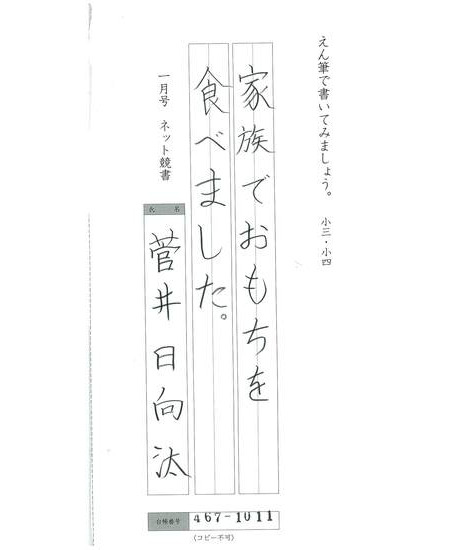 えん筆で書いてみましょう。 小三・小四
家族でおもちを
食べました。
一月号 ネット競書
氏名
菅井日向汰
台帳番号 467-1011
(コピー不可)